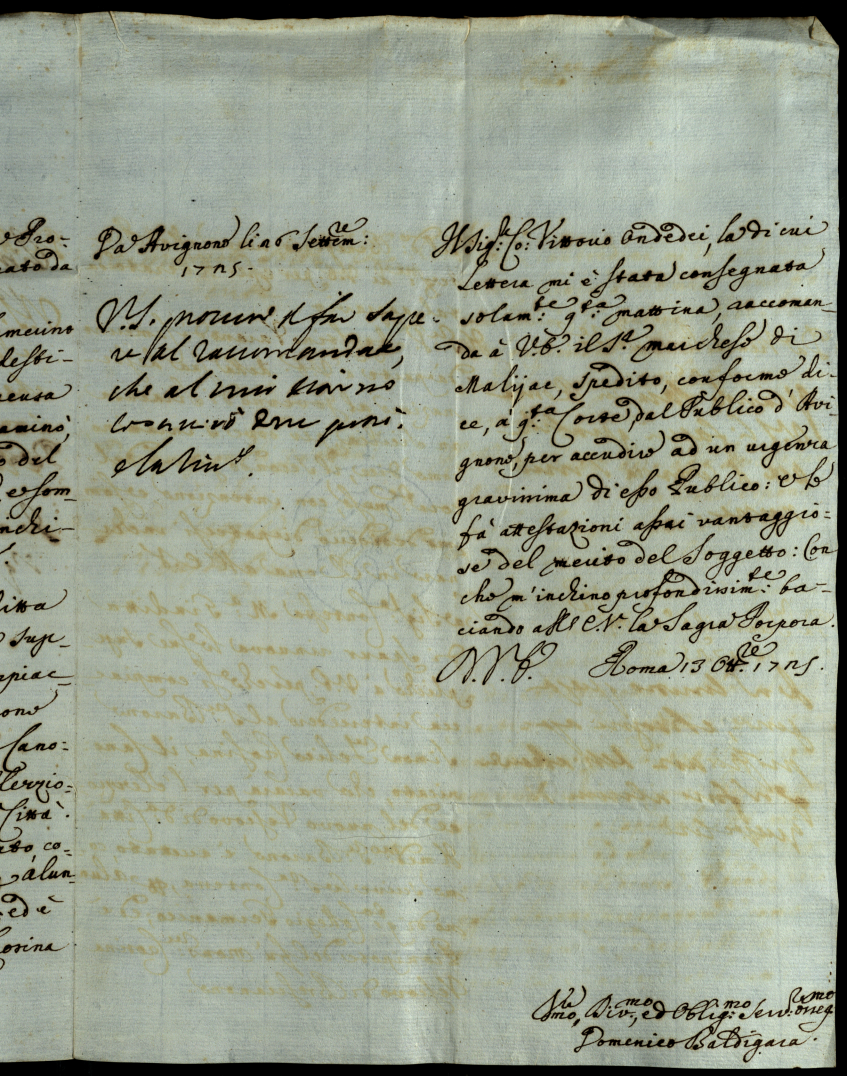 e Pro-
cato da
desti-
camino,
o del
e som-
inchi-
Città
sup-
apiac-
one
Cano-
Terzio-
Città.
ato, co-
e alun-
ed è
Da Avignone li 26 Settem:re
1725.
V.S. procuri di far sape-
re al raccomandat,
che al mio ritorno
Il Sig:r Co: Vittorio Ondedei, la di cui
Lettera mi è stata consegnata
solam:te q:ta mattina, raccoman-
da à V.E. il S:r Marchese di
Malijac, spedito, conforme di-
ce, à q:ta Corte dal Publico d'Avi-
gnone, per accudire ad un urgenza
gravissima di esso Publico: e le
fà attestazioni assai vantaggio-
se del merito del Soggetto: Con
che m'inchino profondissim:te ba-
ciando all' E.V. la Sagra Porpora.
D.V.E. Roma 13 Ott:re 1725.
Um:mo, Div:mo, ed Oblig:mo Serv:re osseq:mo
Domenico Baldigara.